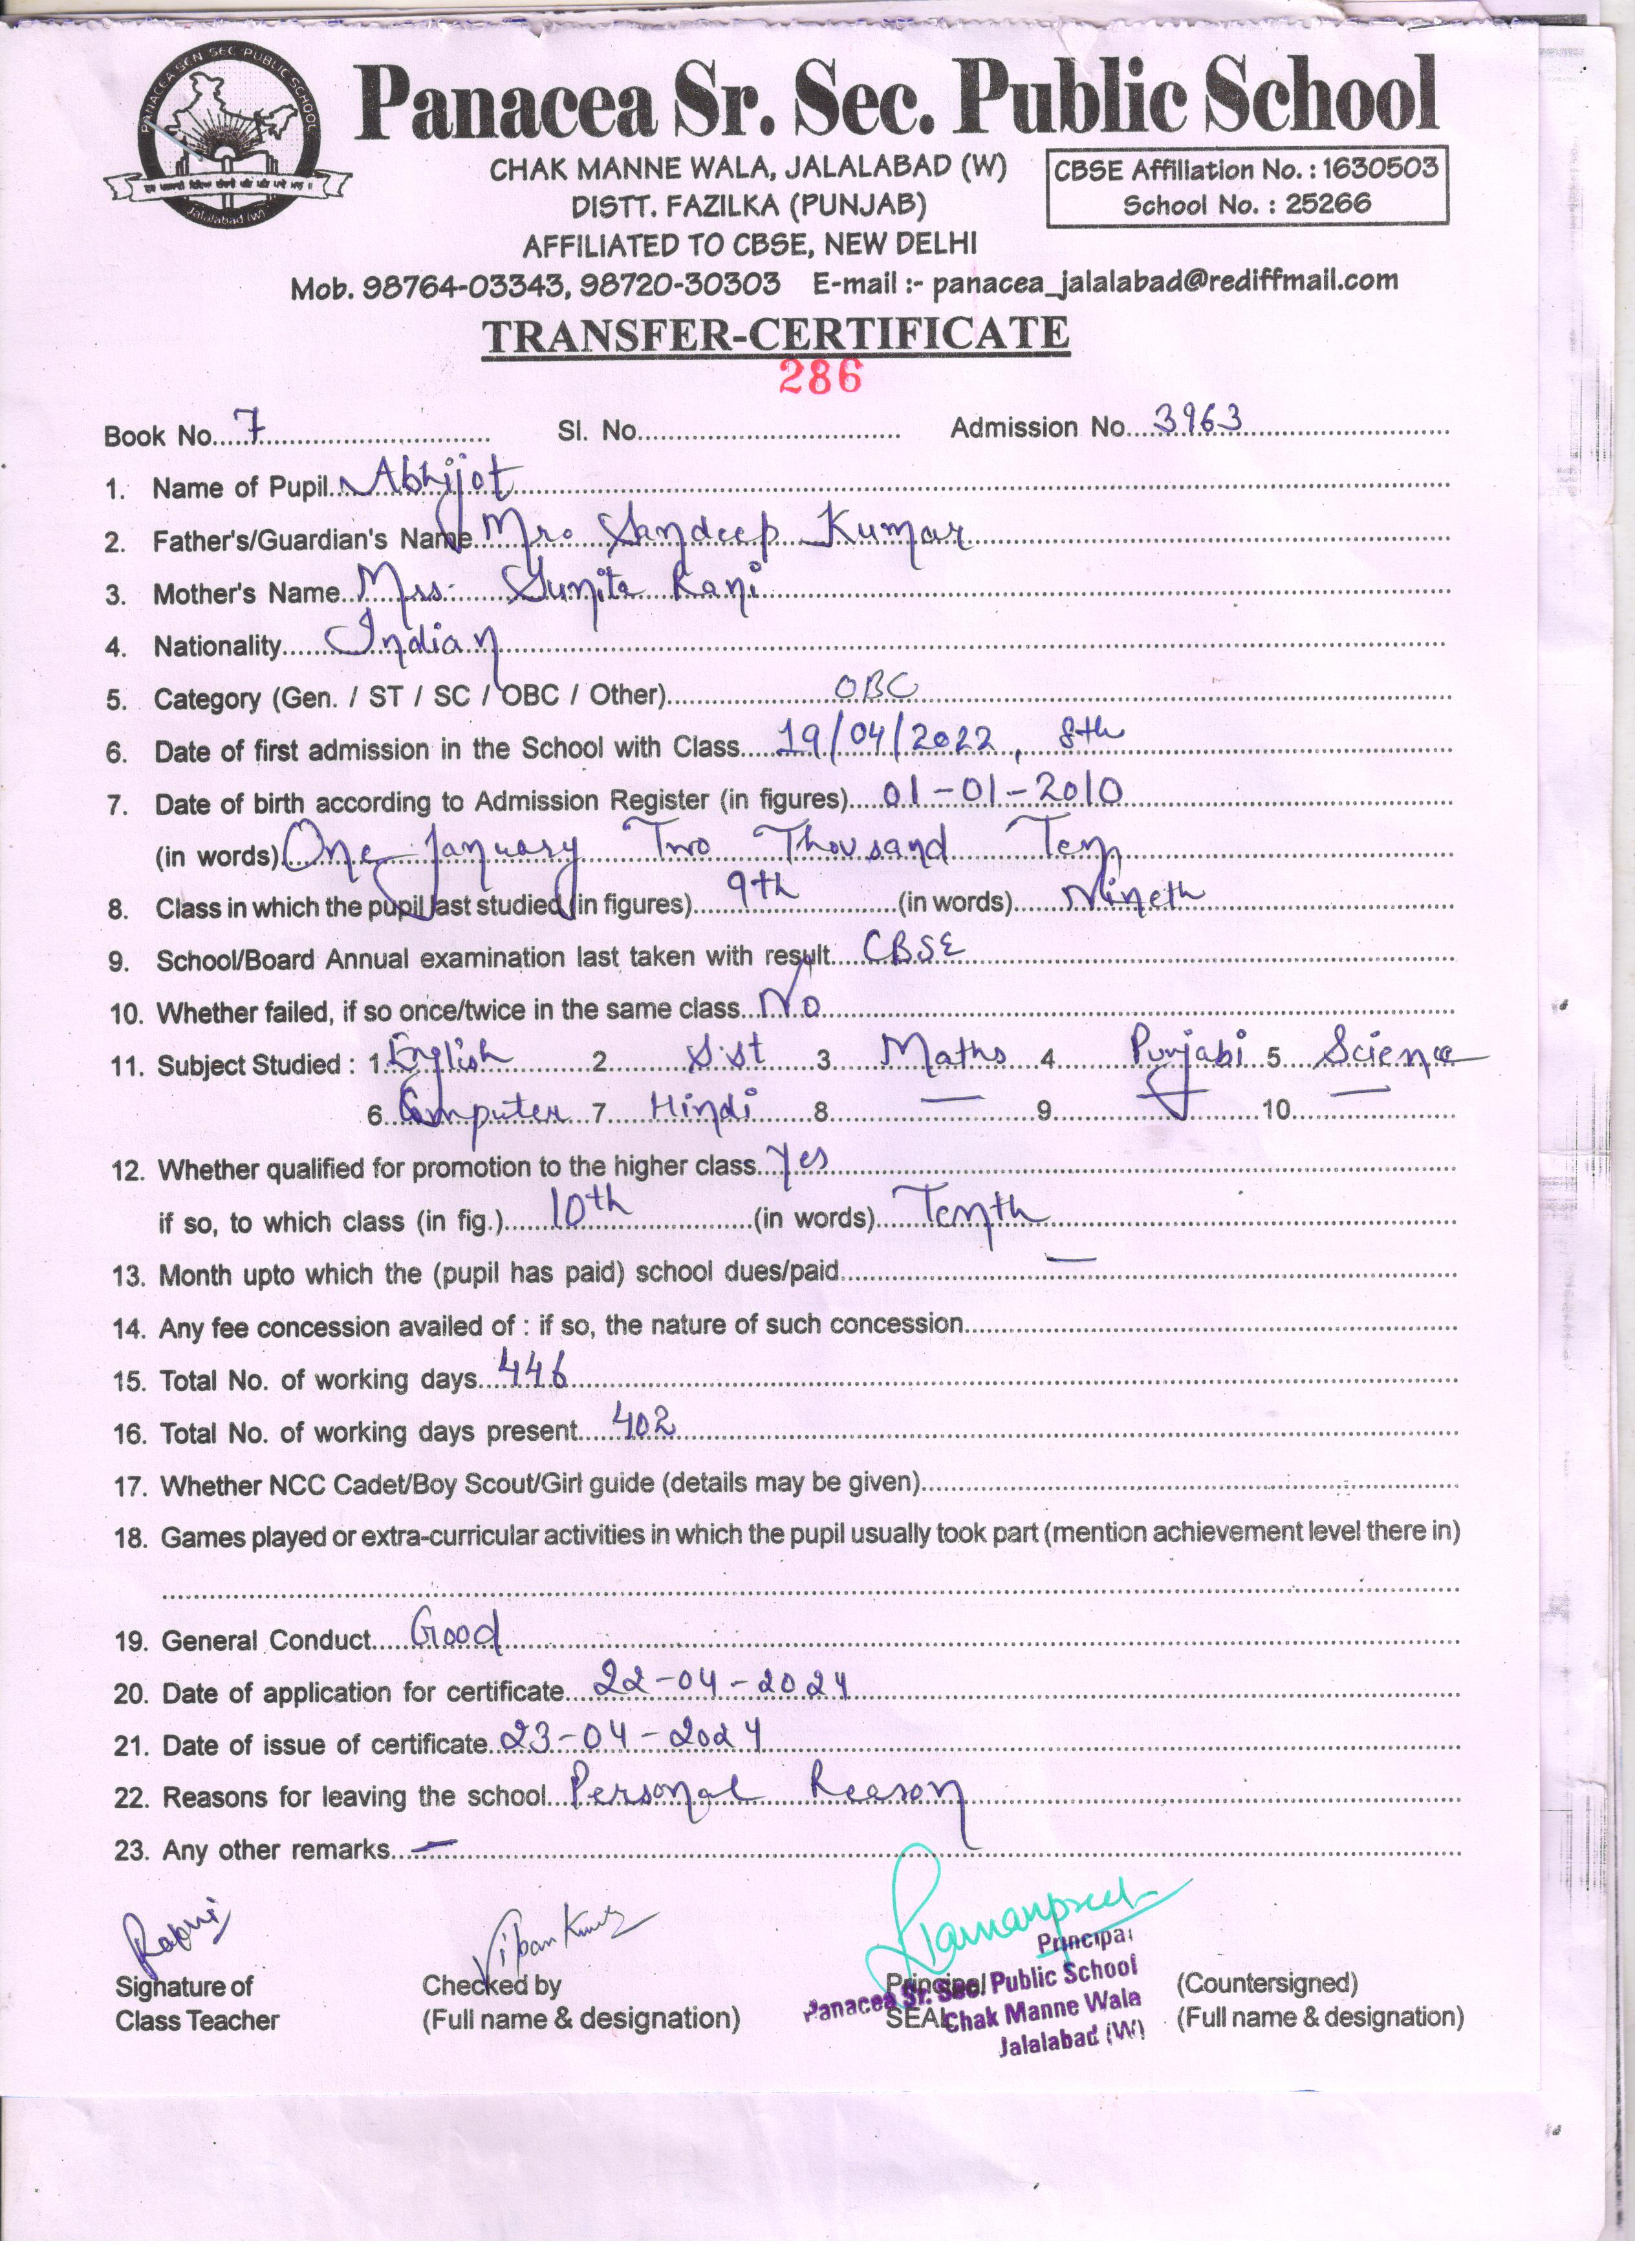 PANACEA SEN SEC PUBLIC SCHOOL
Jalalabad (W)
Panacea Sr. Sec. Public School
CHAK MANNE WALA, JALALABAD (W)
DISTT. FAZILKA (PUNJAB)
CBSE Affiliation No. : 1630503
School No. : 25266
AFFILIATED TO CBSE, NEW DELHI
Mob. 98764-03343, 98720-30303 E-mail :- panacea_jalalabad@rediffmail.com
TRANSFER-CERTIFICATE
286
Book No. 7 Sl. No. Admission No. 3963
1. Name of Pupil Abhijot
2. Father's/Guardian's Name Mr. Sandeep Kumar
3. Mother's Name Mrs. Sunita Rani
4. Nationality Indian
5. Category (Gen. / ST / SC / OBC / Other) OBC
6. Date of first admission in the School with Class 19/04/2022, 8th
7. Date of birth according to Admission Register (in figures) 01-01-2010
(in words) One January Two Thousand Ten
8. Class in which the pupil last studied (in figures) 9th (in words) Nineth
9. School/Board Annual examination last taken with result CBSE
10. Whether failed, if so once/twice in the same class No
11. Subject Studied : 1 English 2 S.st 3 Maths 4 Punjabi 5 Science
6 Computer 7 Hindi 8 — 9 — 10 —
12. Whether qualified for promotion to the higher class Yes
if so, to which class (in fig.) 10th (in words) Tenth
13. Month upto which the (pupil has paid) school dues/paid —
14. Any fee concession availed of : if so, the nature of such concession
15. Total No. of working days 446
16. Total No. of working days present 402
17. Whether NCC Cadet/Boy Scout/Girl guide (details may be given)
18. Games played or extra-curricular activities in which the pupil usually took part (mention achievement level there in)
19. General Conduct Good
20. Date of application for certificate 22-04-2024
21. Date of issue of certificate 23-04-2024
22. Reasons for leaving the school Personal Reason
23. Any other remarks —
Vipan Kumar
Ramanpreet
Signature of
Class Teacher
Checked by
(Full name & designation)
Principal
SEAL
Principal
Panacea Sr. Sec. Public School
Chak Manne Wala
Jalalabad (W)
(Countersigned)
(Full name & designation)